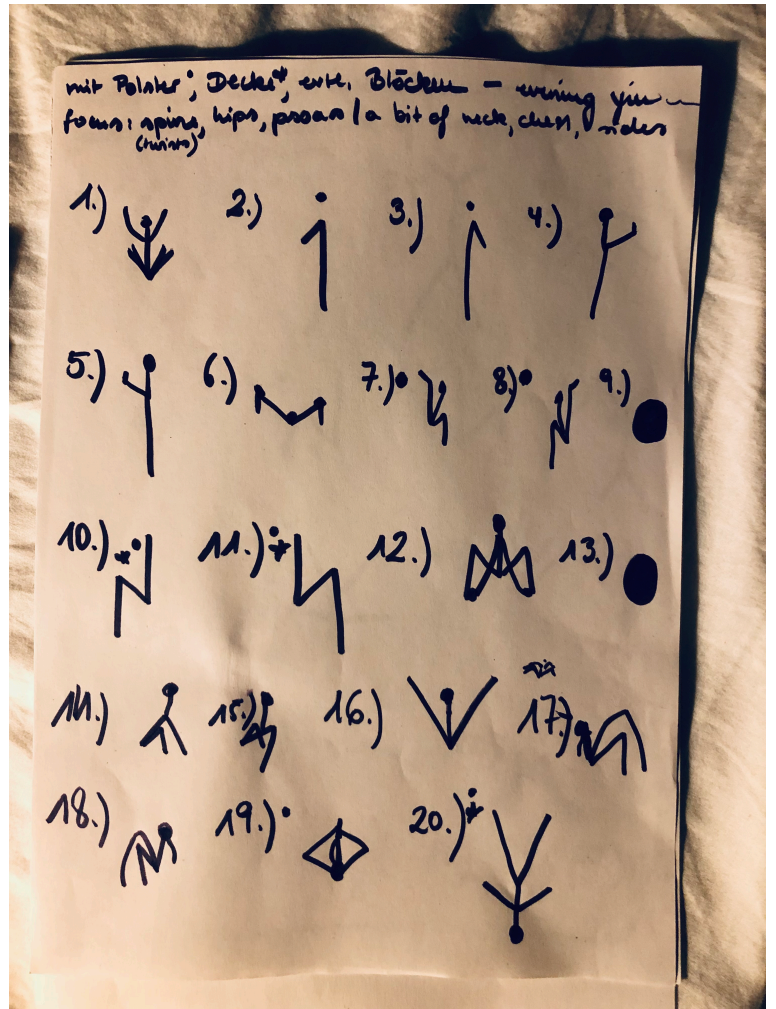 mit Polster°, Decke*, evtl. Blöcken – evening yin
focus: spine, hips, psoas / a bit of neck, chest, sides
(twists)
1.) 2.) 3.) 4.)
5.) 6.) 7.) 8.) 9.)
10.) * 11.) * 12.) 13.)
14.) 15.) 16.) 17.)
18.) 19.) 20.) *